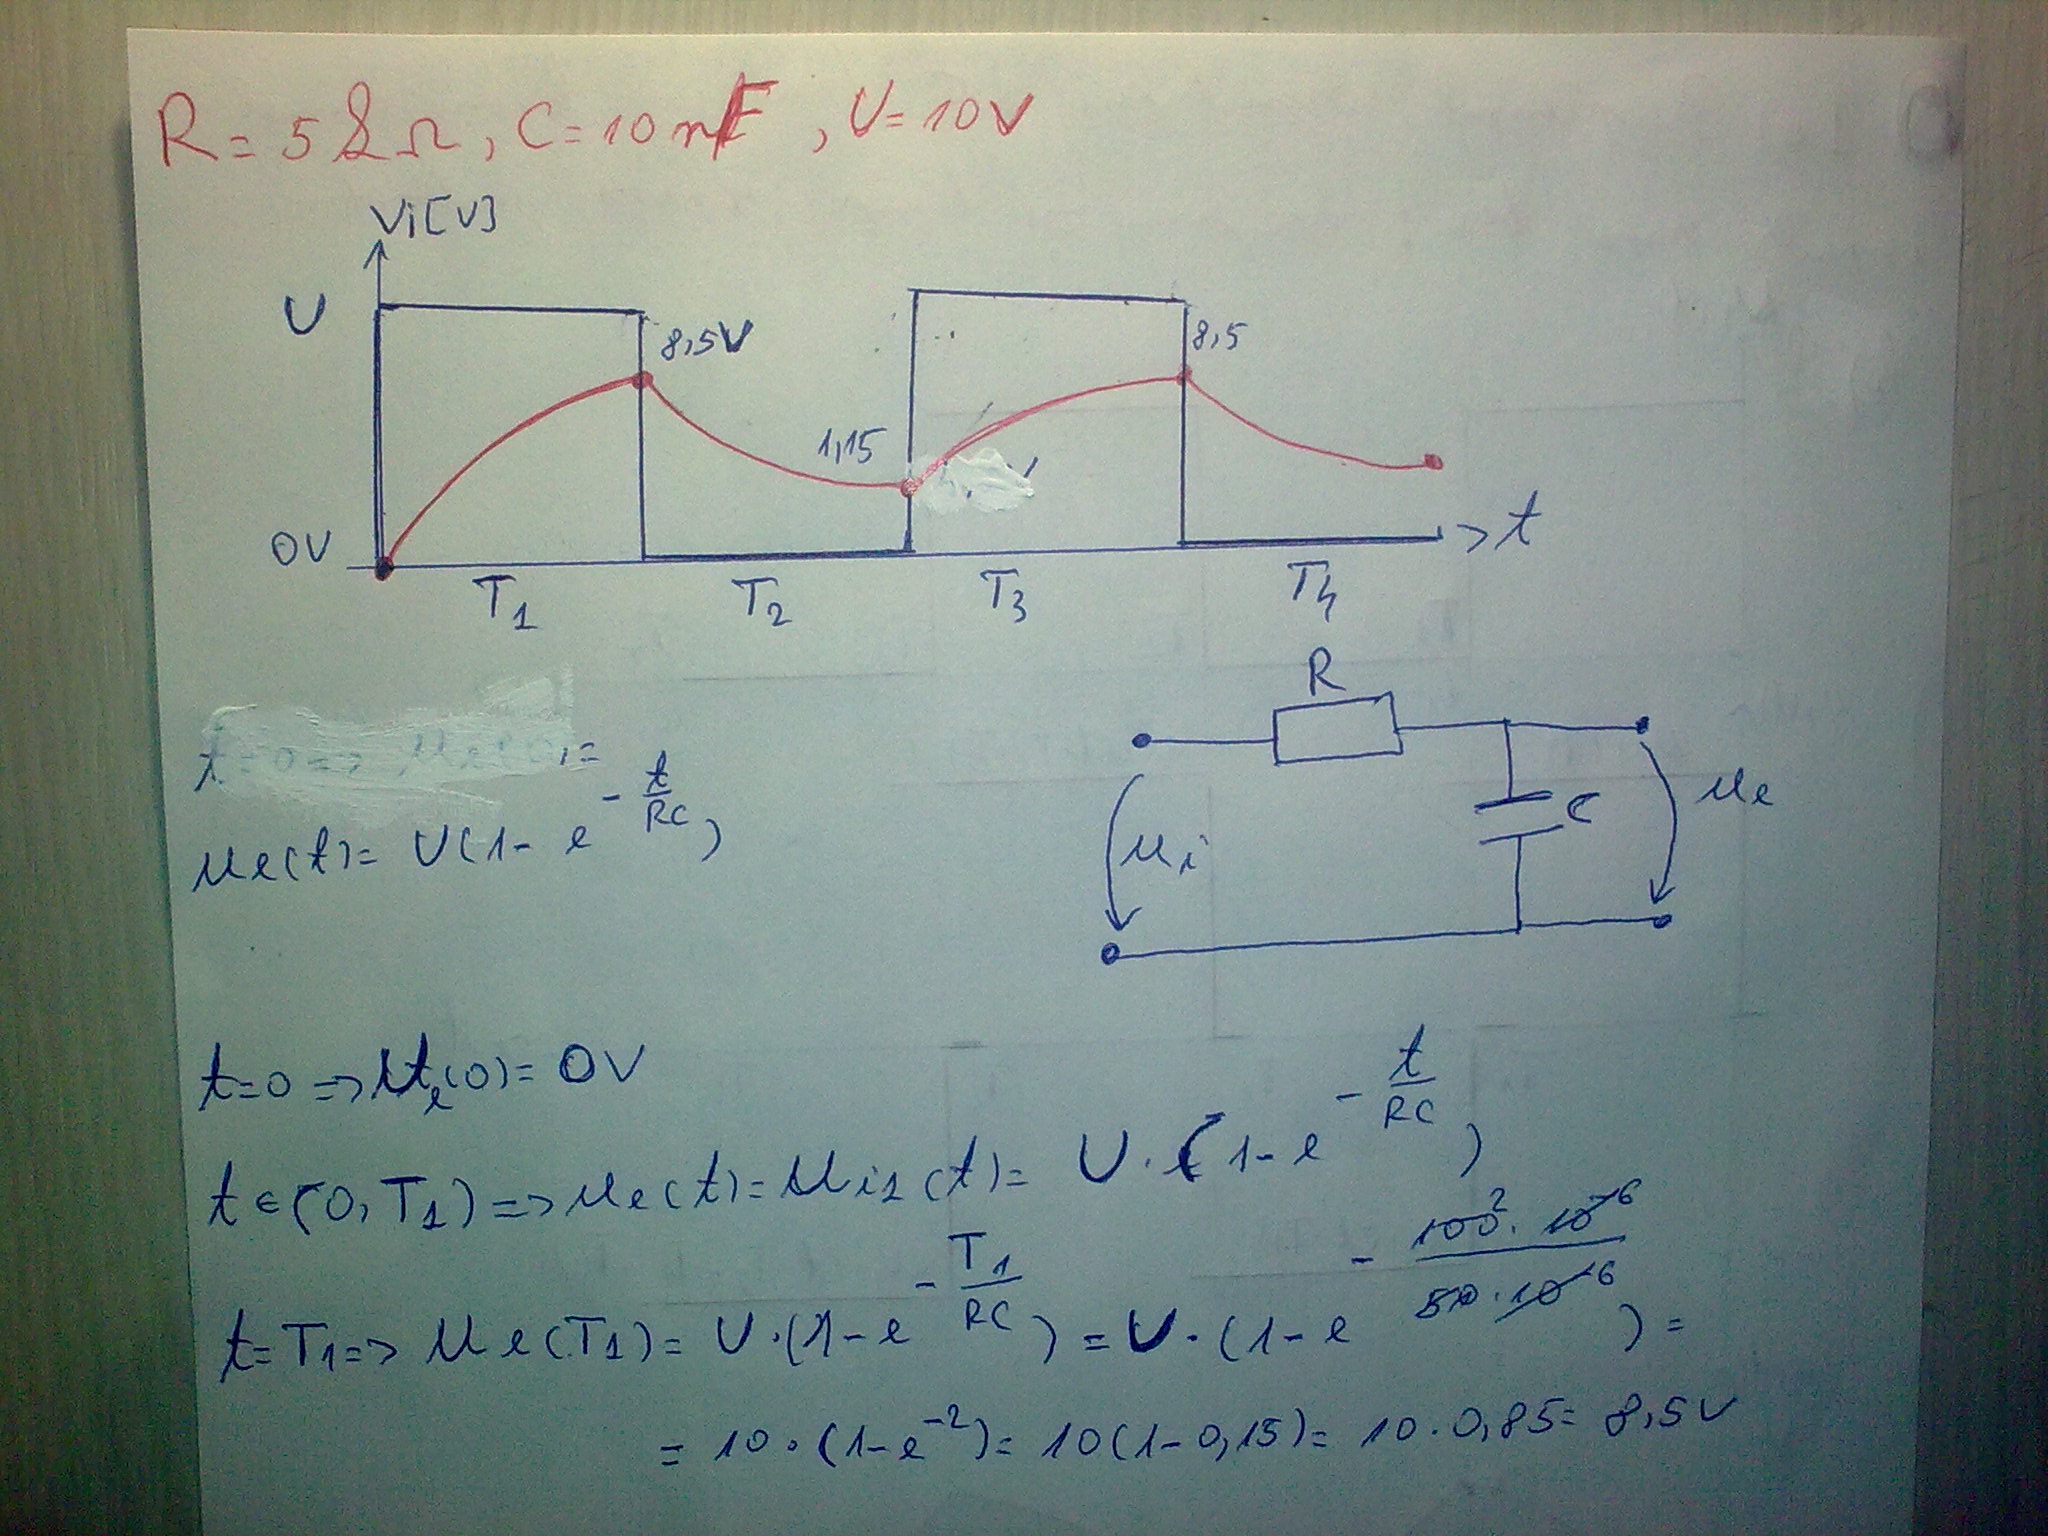 R = 5 kΩ, C = 10 nF, U = 10 V
Vi [V]
U
8,5V
8,5
1,15
0V
t
T1 T2 T3 T4
R
C
ui
ue
t=0 => ue(0)=
ue(t) = U(1 - e^(-t/RC))
t=0 => ue(0) = 0V
t ∈ (0, T1) => ue(t) = ui1(t) = U · (1 - e^(-t/RC))
t = T1 => ue(T1) = U · (1 - e^(-T1/RC)) = U · (1 - e^(-100² · 10^-6 / 50 · 10^-6)) =
= 10 · (1 - e^-2) = 10(1 - 0,15) = 10 · 0,85 = 8,5V